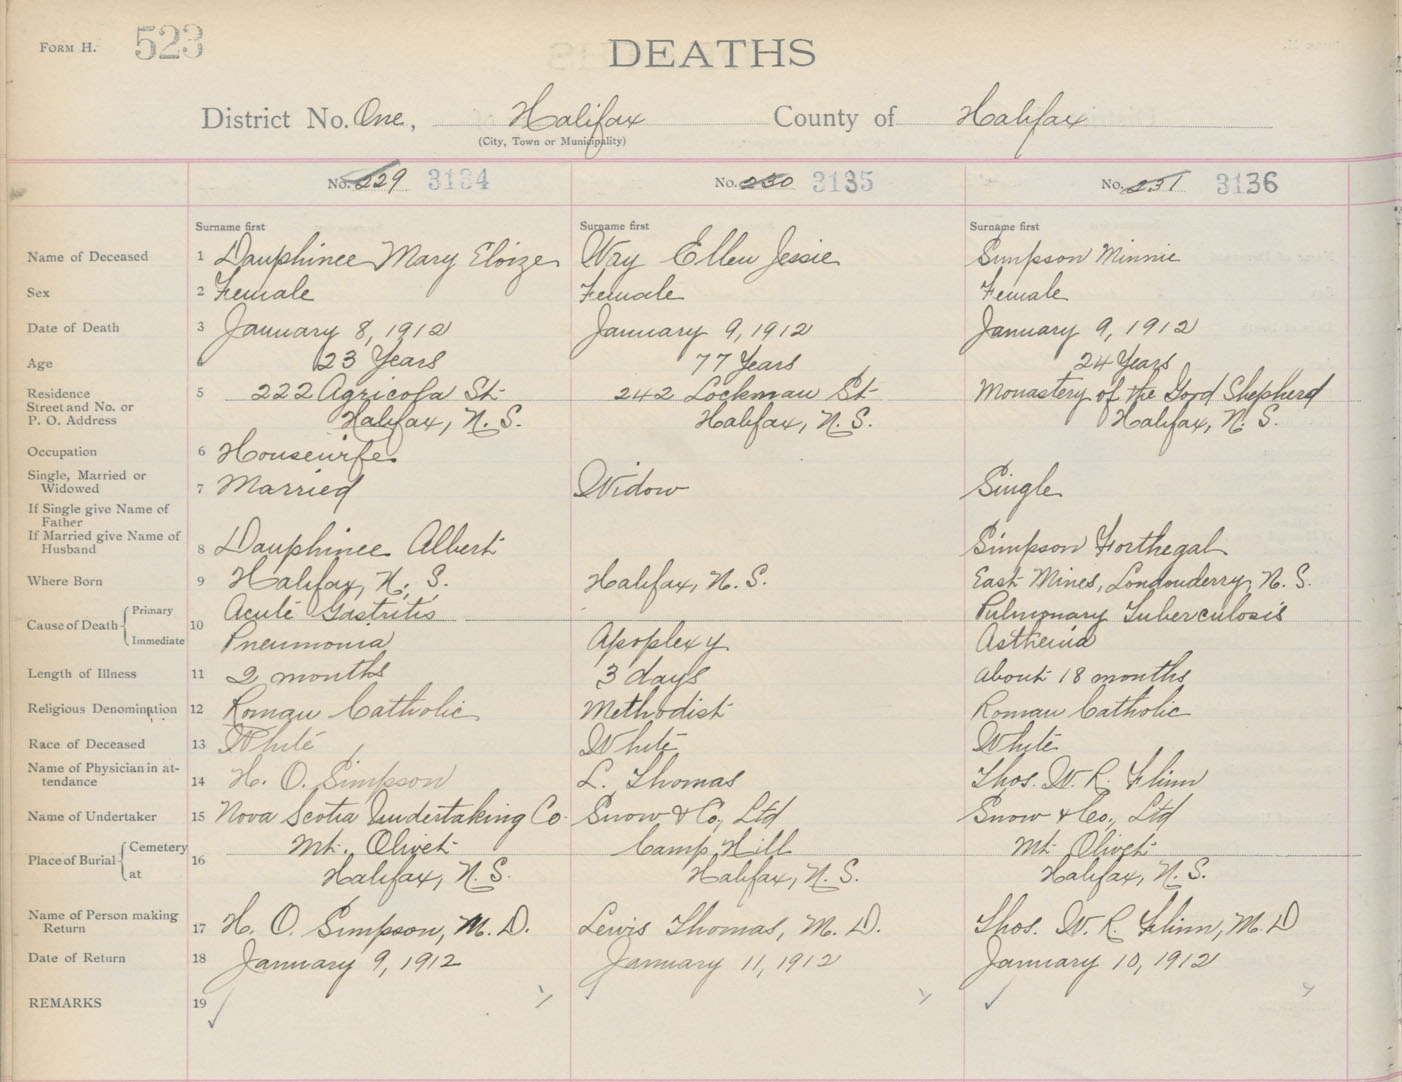 FORM H. 523
DEATHS
District No. One, Halifax County of Halifax
(City, Town or Municipality)
No. 229 3134 No. 230 3135 No. 231 3136
Surname first Surname first Surname first
Name of Deceased 1 Dauphinee Mary Eloize Wry Ellen Jessie Simpson Minnie
Sex 2 Female Female Female
Date of Death 3 January 8, 1912 January 9, 1912 January 9, 1912
Age 4 23 Years 77 Years 24 Years
Residence 5 222 Agricola St 242 Lockman St Monastery of the Good Shepherd
Street and No. or
P. O. Address Halifax, N. S. Halifax, N. S. Halifax, N. S.
Occupation 6 Housewife
Single, Married or
Widowed 7 Married Widow Single
If Single give Name of
Father
If Married give Name of
Husband 8 Dauphinee Albert Simpson
Where Born 9 Halifax, N. S. Halifax, N. S. East Mines, Londonderry, N. S.
Cause of Death Primary 10 Acute Gastritis Pulmonary Tuberculosis
Immediate Pneumonia Apoplexy Asthenia
Length of Illness 11 2 months 3 days about 18 months
Religious Denomination 12 Roman Catholic Methodist Roman Catholic
Race of Deceased 13 White White White
Name of Physician in at-
tendance 14 H. O. Simpson L. Thomas Thos. W. R. Flinn
Name of Undertaker 15 Nova Scotia Undertaking Co. Snow & Co., Ltd Snow & Co., Ltd
Place of Burial Cemetery 16 Mt. Olivet Camp Hill Mt Olivet
at Halifax, N. S. Halifax, N. S. Halifax, N. S.
Name of Person making
Return 17 H. O. Simpson, M. D. Lewis Thomas, M. D. Thos. W. R. Flinn, M. D
Date of Return 18 January 9, 1912 January 11, 1912 January 10, 1912
REMARKS 19